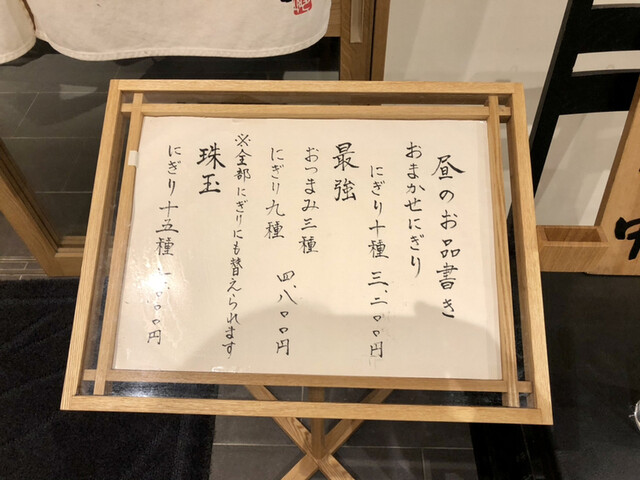 昼のお品書き
おまかせにぎり
にぎり十種 三、二〇〇円
最強
おつまみ三種
にぎり九種 四、八〇〇円
※全部にぎりにも替えられます
珠玉
にぎり十五種